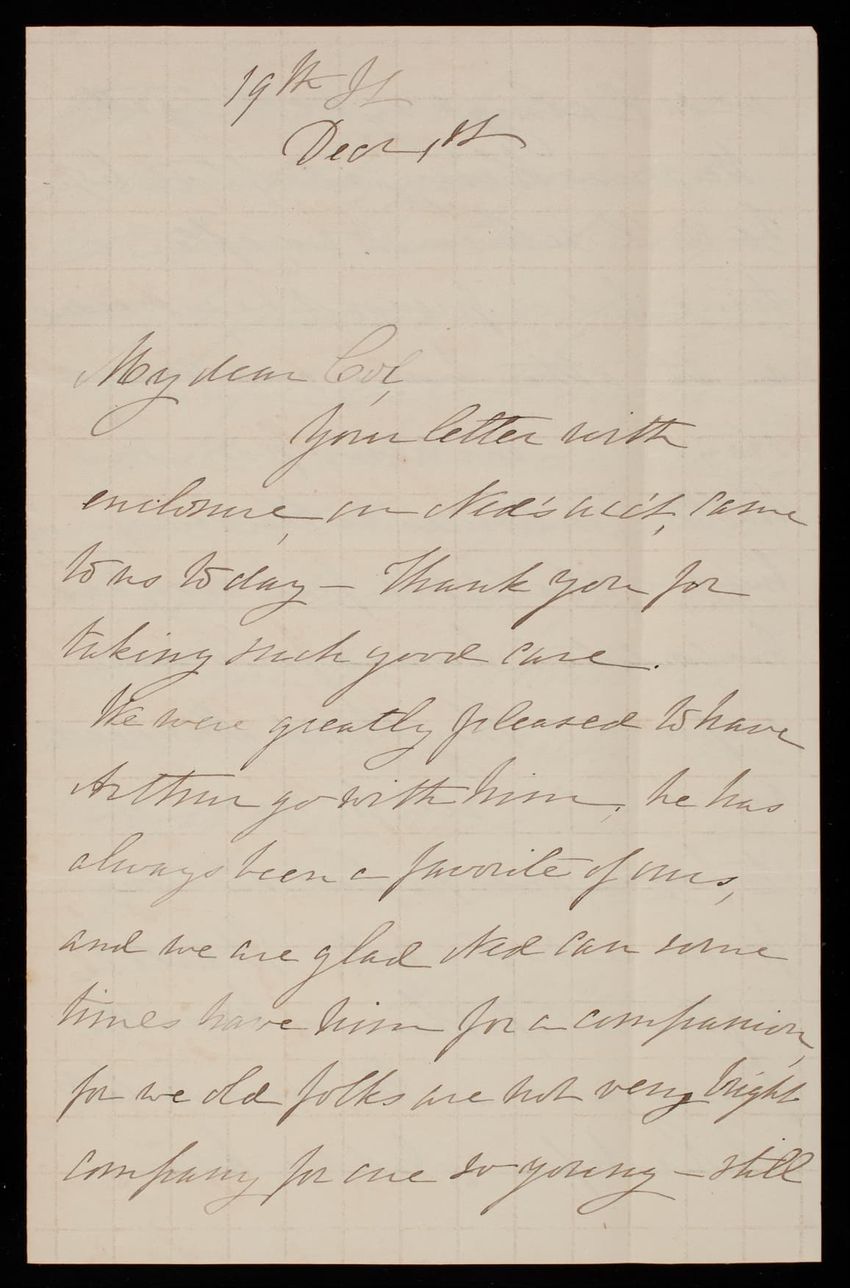 19th St
Decr 1st
My dear Col,
Your letter with
enclosure, on Ned's acc't, came
to us to day — Thank you for
taking such good care.
We were greatly pleased to have
Arthur go with him, he has
always been a favorite of ours,
and we are glad Ned can some
times have him for a companion,
for we old folks are not very bright
company for one so young — still